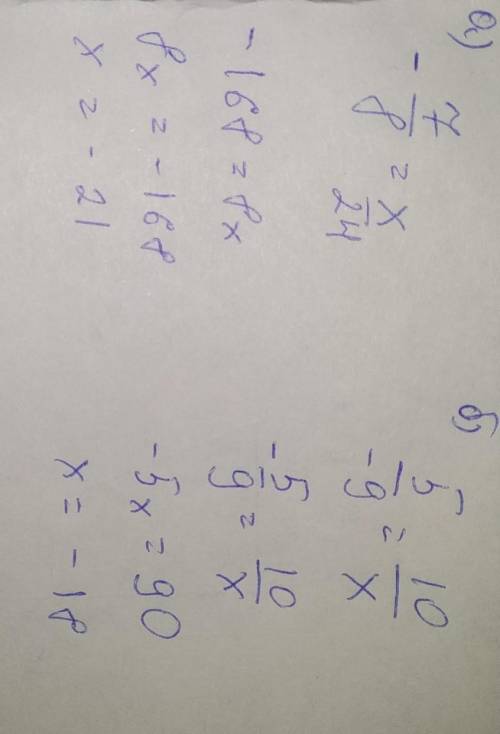 а)
- 7/8 = x/24
- 168 = 8x
8x = - 168
x = - 21
б)
5/-9 = 10/x
- 5/9 = 10/x
- 5x = 90
x = - 18